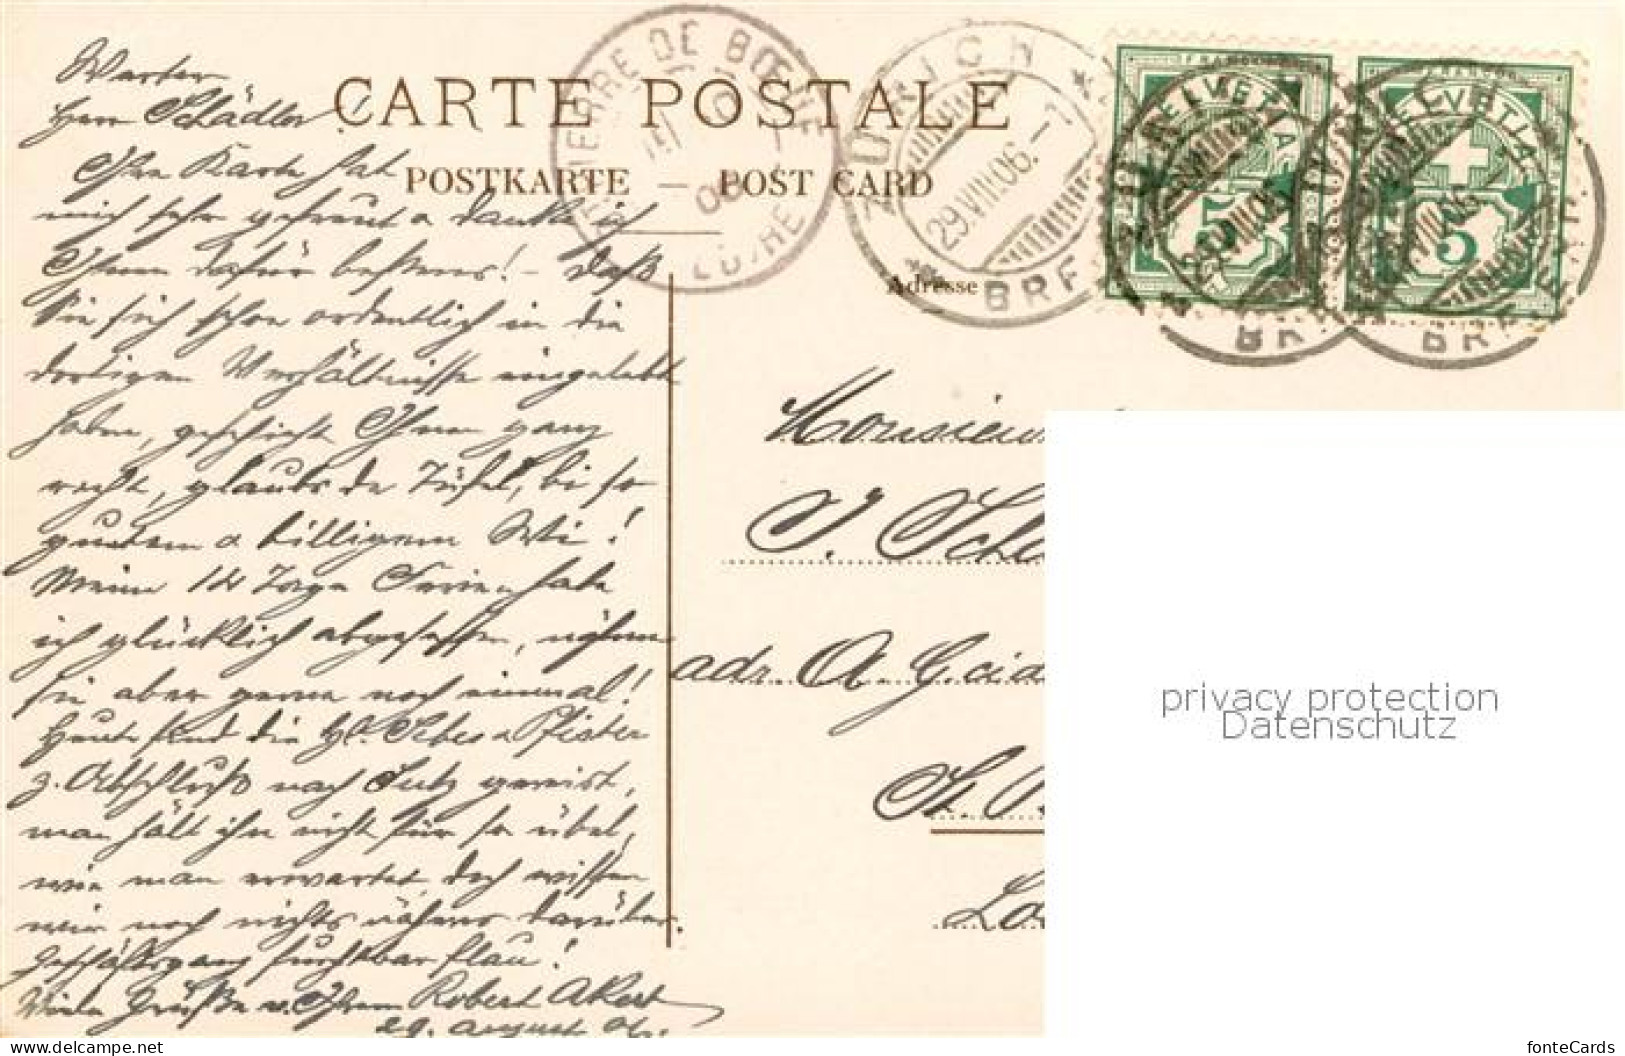 Werter
Herr Schädler!
Ihre Karte hat
mich sehr gefreut & danke ich
Ihnen dafür bestens! – Daß
Sie sich schon ordentlich in die
dortigen Verhältnisse eingelebt
haben, geschieht Ihnen ganz
recht, glaubs de Tüfel, bi so
gutem & billigem Wi!
Meine 14 Tage Ferien habe
ich glücklich abgesessen, nähme
sie aber gerne noch einmal!
Heute sind die HH. & Pfister
z. Abschluß nach gereist,
man hält ihn nicht für so übel,
wie man erwartet, doch wissen
wir noch nichts näheres darüber.
Geschäftsgang furchtbar flau!
Viele Grüße v. Ihrem Robert Akert
29. August 06.
CARTE POSTALE
POSTKARTE — POST CARD
PIERRE DE BŒUF
LOIRE
ZÜRICH
29.VIII.06.–7
BRF
HELVETIA
5
HELVETIA
5
Adresse
Monsieur
J. Schä
adr. A.
St. P
Lo
privacy protection
Datenschutz
www.delcampe.net
fonteCards